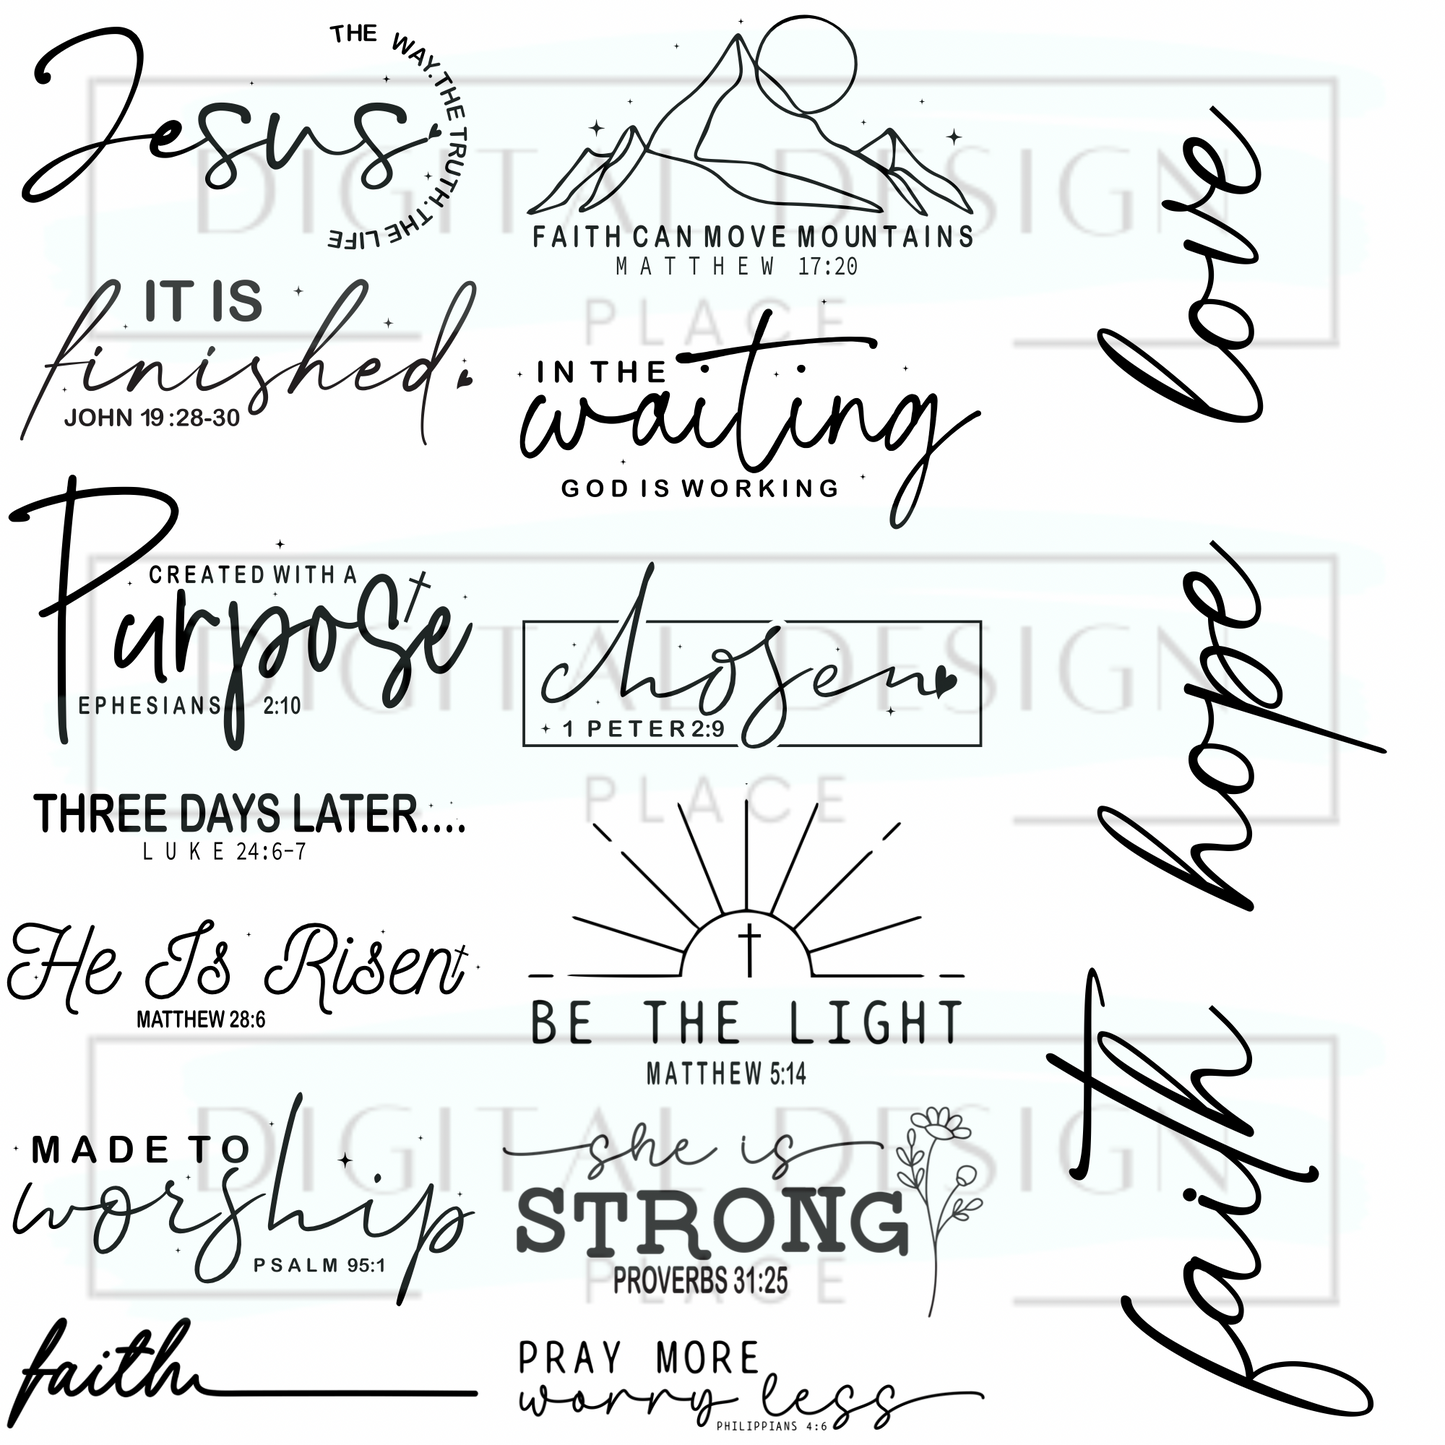 Jesus
THE WAY.THE TRUTH.THE LIFE
IT IS
finished
JOHN 19:28-30
CREATED WITH A
Purpose
EPHESIANS 2:10
THREE DAYS LATER....
LUKE 24:6-7
He Is Risen
MATTHEW 28:6
MADE TO
worship
PSALM 95:1
faith
FAITH CAN MOVE MOUNTAINS
MATTHEW 17:20
IN THE
waiting
GOD IS WORKING
chosen
1 PETER 2:9
BE THE LIGHT
MATTHEW 5:14
she is
STRONG
PROVERBS 31:25
PRAY MORE
worry less
PHILIPPIANS 4:6
love
hope
faith
DIGITAL DESIGN
PLACE
DIGITAL DESIGN
PLACE
DIGITAL DESIGN
PLACE